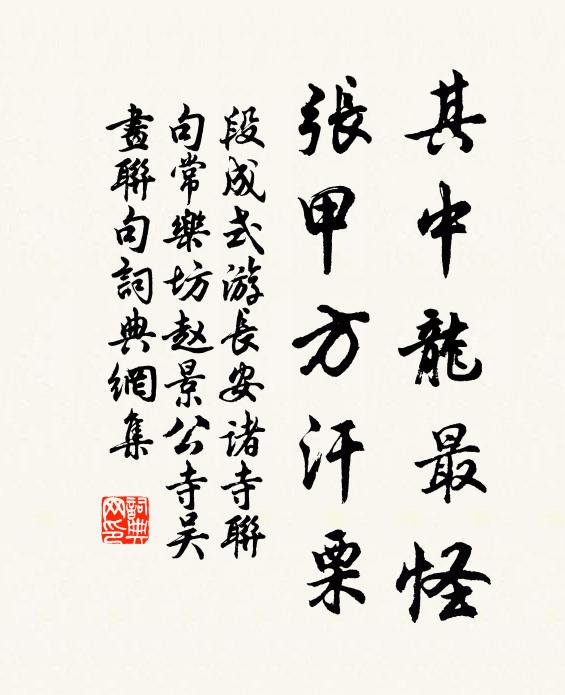 其中龍最怪
張甲方汗栗
段成式游長安諸寺聯
句常樂坊赵景公寺吴
畫聯句詞典網集
詞典网印